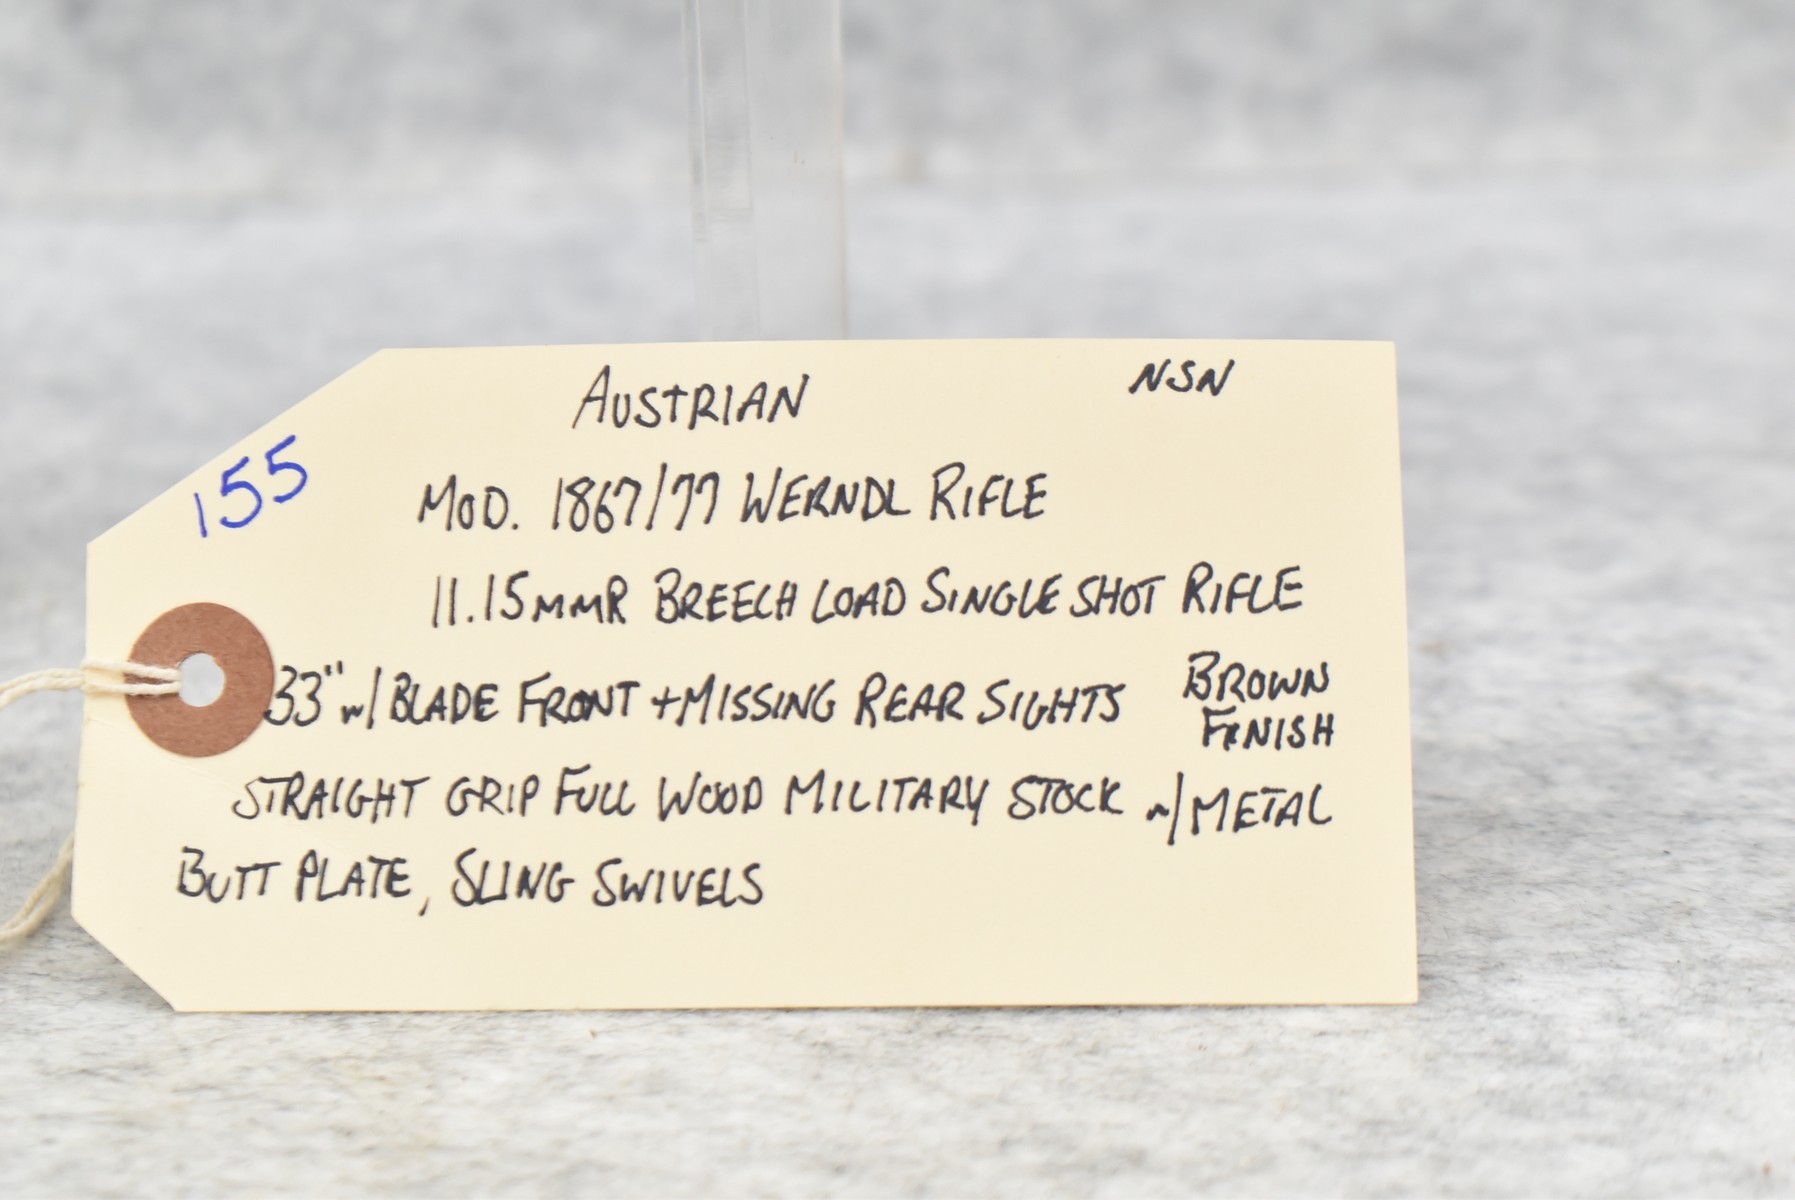 AUSTRIAN NSN
155
MOD. 1867/77 WERNDL RIFLE
11.15MMR BREECH LOAD SINGLE SHOT RIFLE
33" w/ BLADE FRONT + MISSING REAR SIGHTS BROWN
FINISH
STRAIGHT GRIP FULL WOOD MILITARY STOCK w/ METAL
BUTT PLATE, SLING SWIVELS